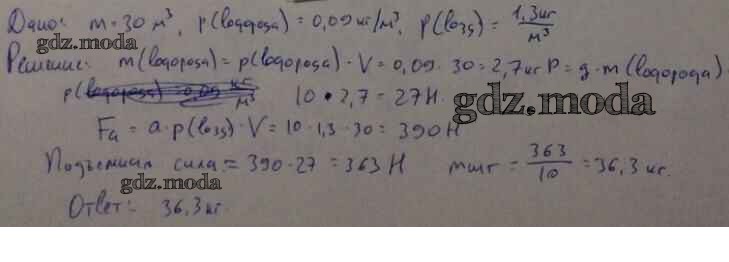 Дано: m = 30 м³, p(водорода) = 0,09 кг/м³, p(возд) = 1,3 кг/м³
gdz.moda
Решение: m(водорода) = p(водорода) · V = 0,09 · 30 = 2,7 кг P = g · m(водорода)
p(водорода) = 0,09 кг/м³ 10 • 2,7 = 27 Н. gdz.moda
Fа = a · p(возд) · V = 10 · 1,3 · 30 = 390 Н
Подъемная сила = 390 - 27 = 363 Н m шг = 363/10 = 36,3 кг.
gdz.moda
Ответ: 36,3 кг.